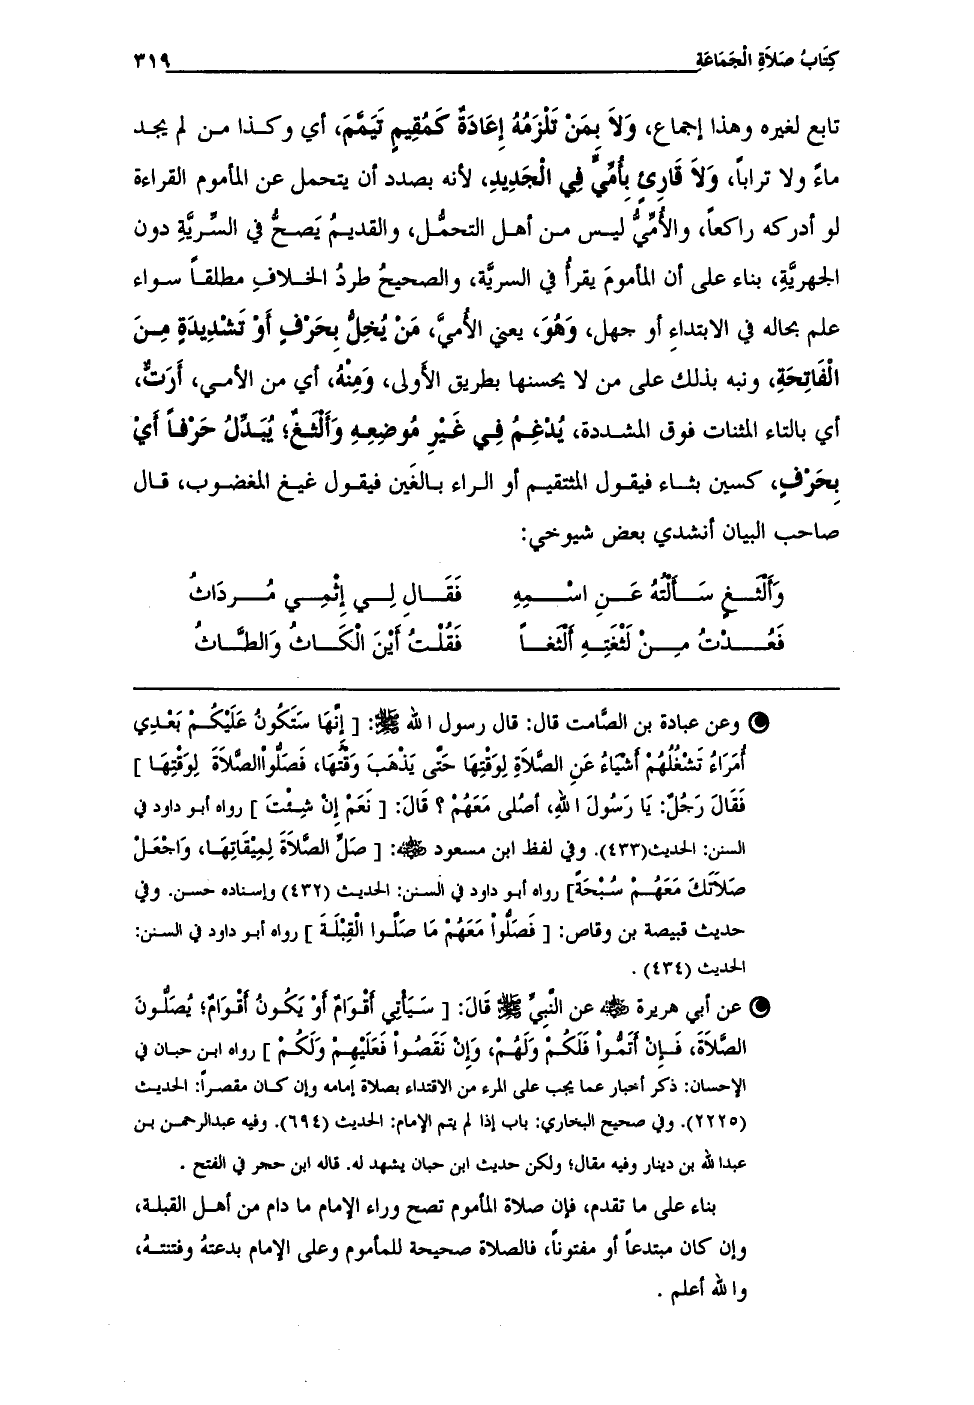 كِتَابُ صَلَاةِ الْجَمَاعَةِ ٣١٩
تابع لغيره وهذا إجماع، وَلَا بِمَنْ تَلْزَمُهُ إِعَادَةٌ كَمُقِيمٍ تَيَمَّمَ، أي وكذا من لم يجد
ماءً ولا تراباً، وَلَا قَارِئٍ بِأُمِّيٍّ فِي الْجَدِيدِ، لأنه بصدد أن يتحمل عن المأموم القراءة
لو أدركه راكعاً، والأُمِّيُّ ليس من أهل التحمُّل، والقديمُ يَصحُّ في السِّريَّةِ دون
الجهريَّةِ، بناء على أن المأمومَ يقرأُ في السريَّة، والصحيحُ طردُ الخلافِ مطلقاً سواء
علم بحاله في الابتداءِ أو جهل، وَهُوَ، يعني الأُميَّ، مَنْ يُخِلُّ بِحَرْفٍ أَوْ تَشْدِيدَةٍ مِنَ
الْفَاتِحَةِ، ونبه بذلك على من لا يحسنها بطريق الأَولى، وَمِنْهُ، أي من الأمي، أَرَتٌّ،
أي بالتاء المثنات فوق المشددة، يُدْغِمُ فِي غَيْرِ مُوضِعِهِ وَأَلْثَغٌ؛ يُبَدِّلُ حَرْفاً أَيْ
بِحَرْفٍ، كسين بثاء فيقول المثتقيم أو الراء بالغَين فيقول غيغ المغضوب، قال
صاحب البيان أنشدي بعض شيوخي:
وَأَلْثَغٍ سَأَلْتُهُ عَنِ اسْمِهِ فَقَالِ لِي إثْمِي مُردَاثُ
فَعُدْتُ مِنْ لَثْغَتِهِ أَلْثَغاً فَقُلْتُ أَيْنَ الْكَاثُ وَالطَّاثُ
وعن عبادة بن الصَّامت قال: قال رسول الله ﷺ: [ إِنَّهَا سَتَكُونُ عَلَيْكُمْ بَعْدِي
أُمَرَاءُ تَشْغُلُهُمْ أَشْيَاءُ عَنِ الصَّلَاةِ لِوَقْتِهَا حَتَّى يَذْهَبَ وَقْتُهَا، فَصَلُّواْالصَّلَاةَ لِوَقْتِهَا ]
فَقَالَ رَجُلٌ: يَا رَسُولَ اللهِ، أصُلى مَعَهُمْ ؟ قَالَ: [ نَعَمْ إِنْ شِئْتَ ] رواه أبو داود في
السنن: الحديث(٤٣٣). وفي لفظ ابن مسعود ﷺ: [ صَلِّ الصَّلَاةَ لِمِيْقَاتِهَا، وَاجْعَلْ
صَلَاتَكَ مَعَهُمْ سُبْحَةً] رواه أبو داود في السنن: الحديث (٤٣٢) وإسناده حسن. وفي
حديث قبيصة بن وقاص: [ فَصَلُّواْ مَعَهُمْ مَا صَلَّوا الْقِبْلَةَ ] رواه أبو داود في السنن:
الحديث (٤٣٤) .
عن أبي هريرة عن النَّبِيِّ ﷺ قَالَ: [ سَيَأْتِي أَقْوَامٌ أَوْ يَكُونُ أَقْوَامٌ؛ يُصَلُّونَ
الصَّلَاةَ، فَإِنْ أَتَمُّواْ فَلَكُمْ وَلَهُمْ، وَإِنْ نَقَصُواْ فَعَلَيْهِمْ وَلَكُمْ ] رواه ابن حبان في
الإحسان: ذكر أخبار عما يجب على المرء من الاقتداء بصلاة إمامه وإن كان مقصراً: الحديث
(٢٢٢٥). وفي صحيح البخاري: باب إذا لم يتم الإمام: الحديث (٦٩٤). وفيه عبدالرحمن بن
عبدالله بن دينار وفيه مقال؛ ولكن حديث ابن حبان يشهد له. قاله ابن حجر في الفتح .
بناء على ما تقدم، فإن صلاة المأموم تصح وراء الإمام ما دام من أهل القبلة،
وإن كان مبتدعاً أو مفتوناً، فالصلاة صحيحة للمأموم وعلى الإمام بدعتهُ وفتنتهُ،
والله أعلم .